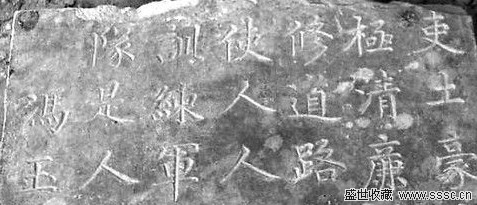 吏土豪
極清廉
修道路
使人人
訓練軍
隊是人
馮玉
盛世收藏
www.sssc.cn